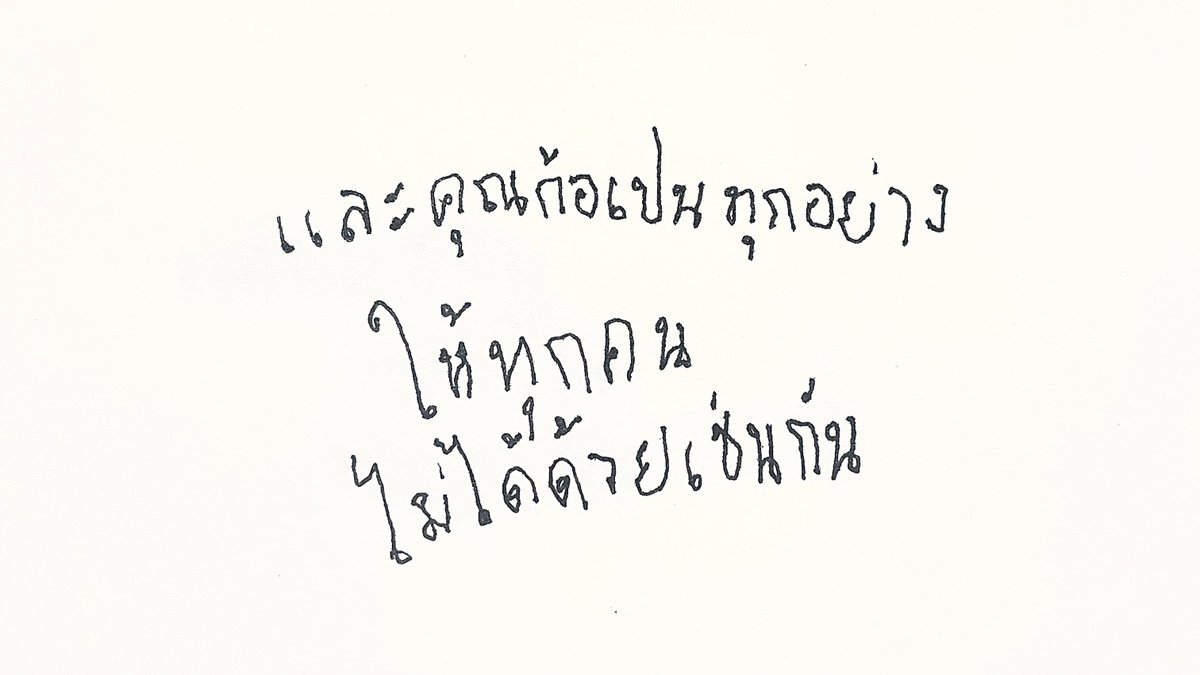 และคุณก้อเปนทุกอย่าง
ให้ทุกคน
ไม่ได้ด้วยเช่นกัน